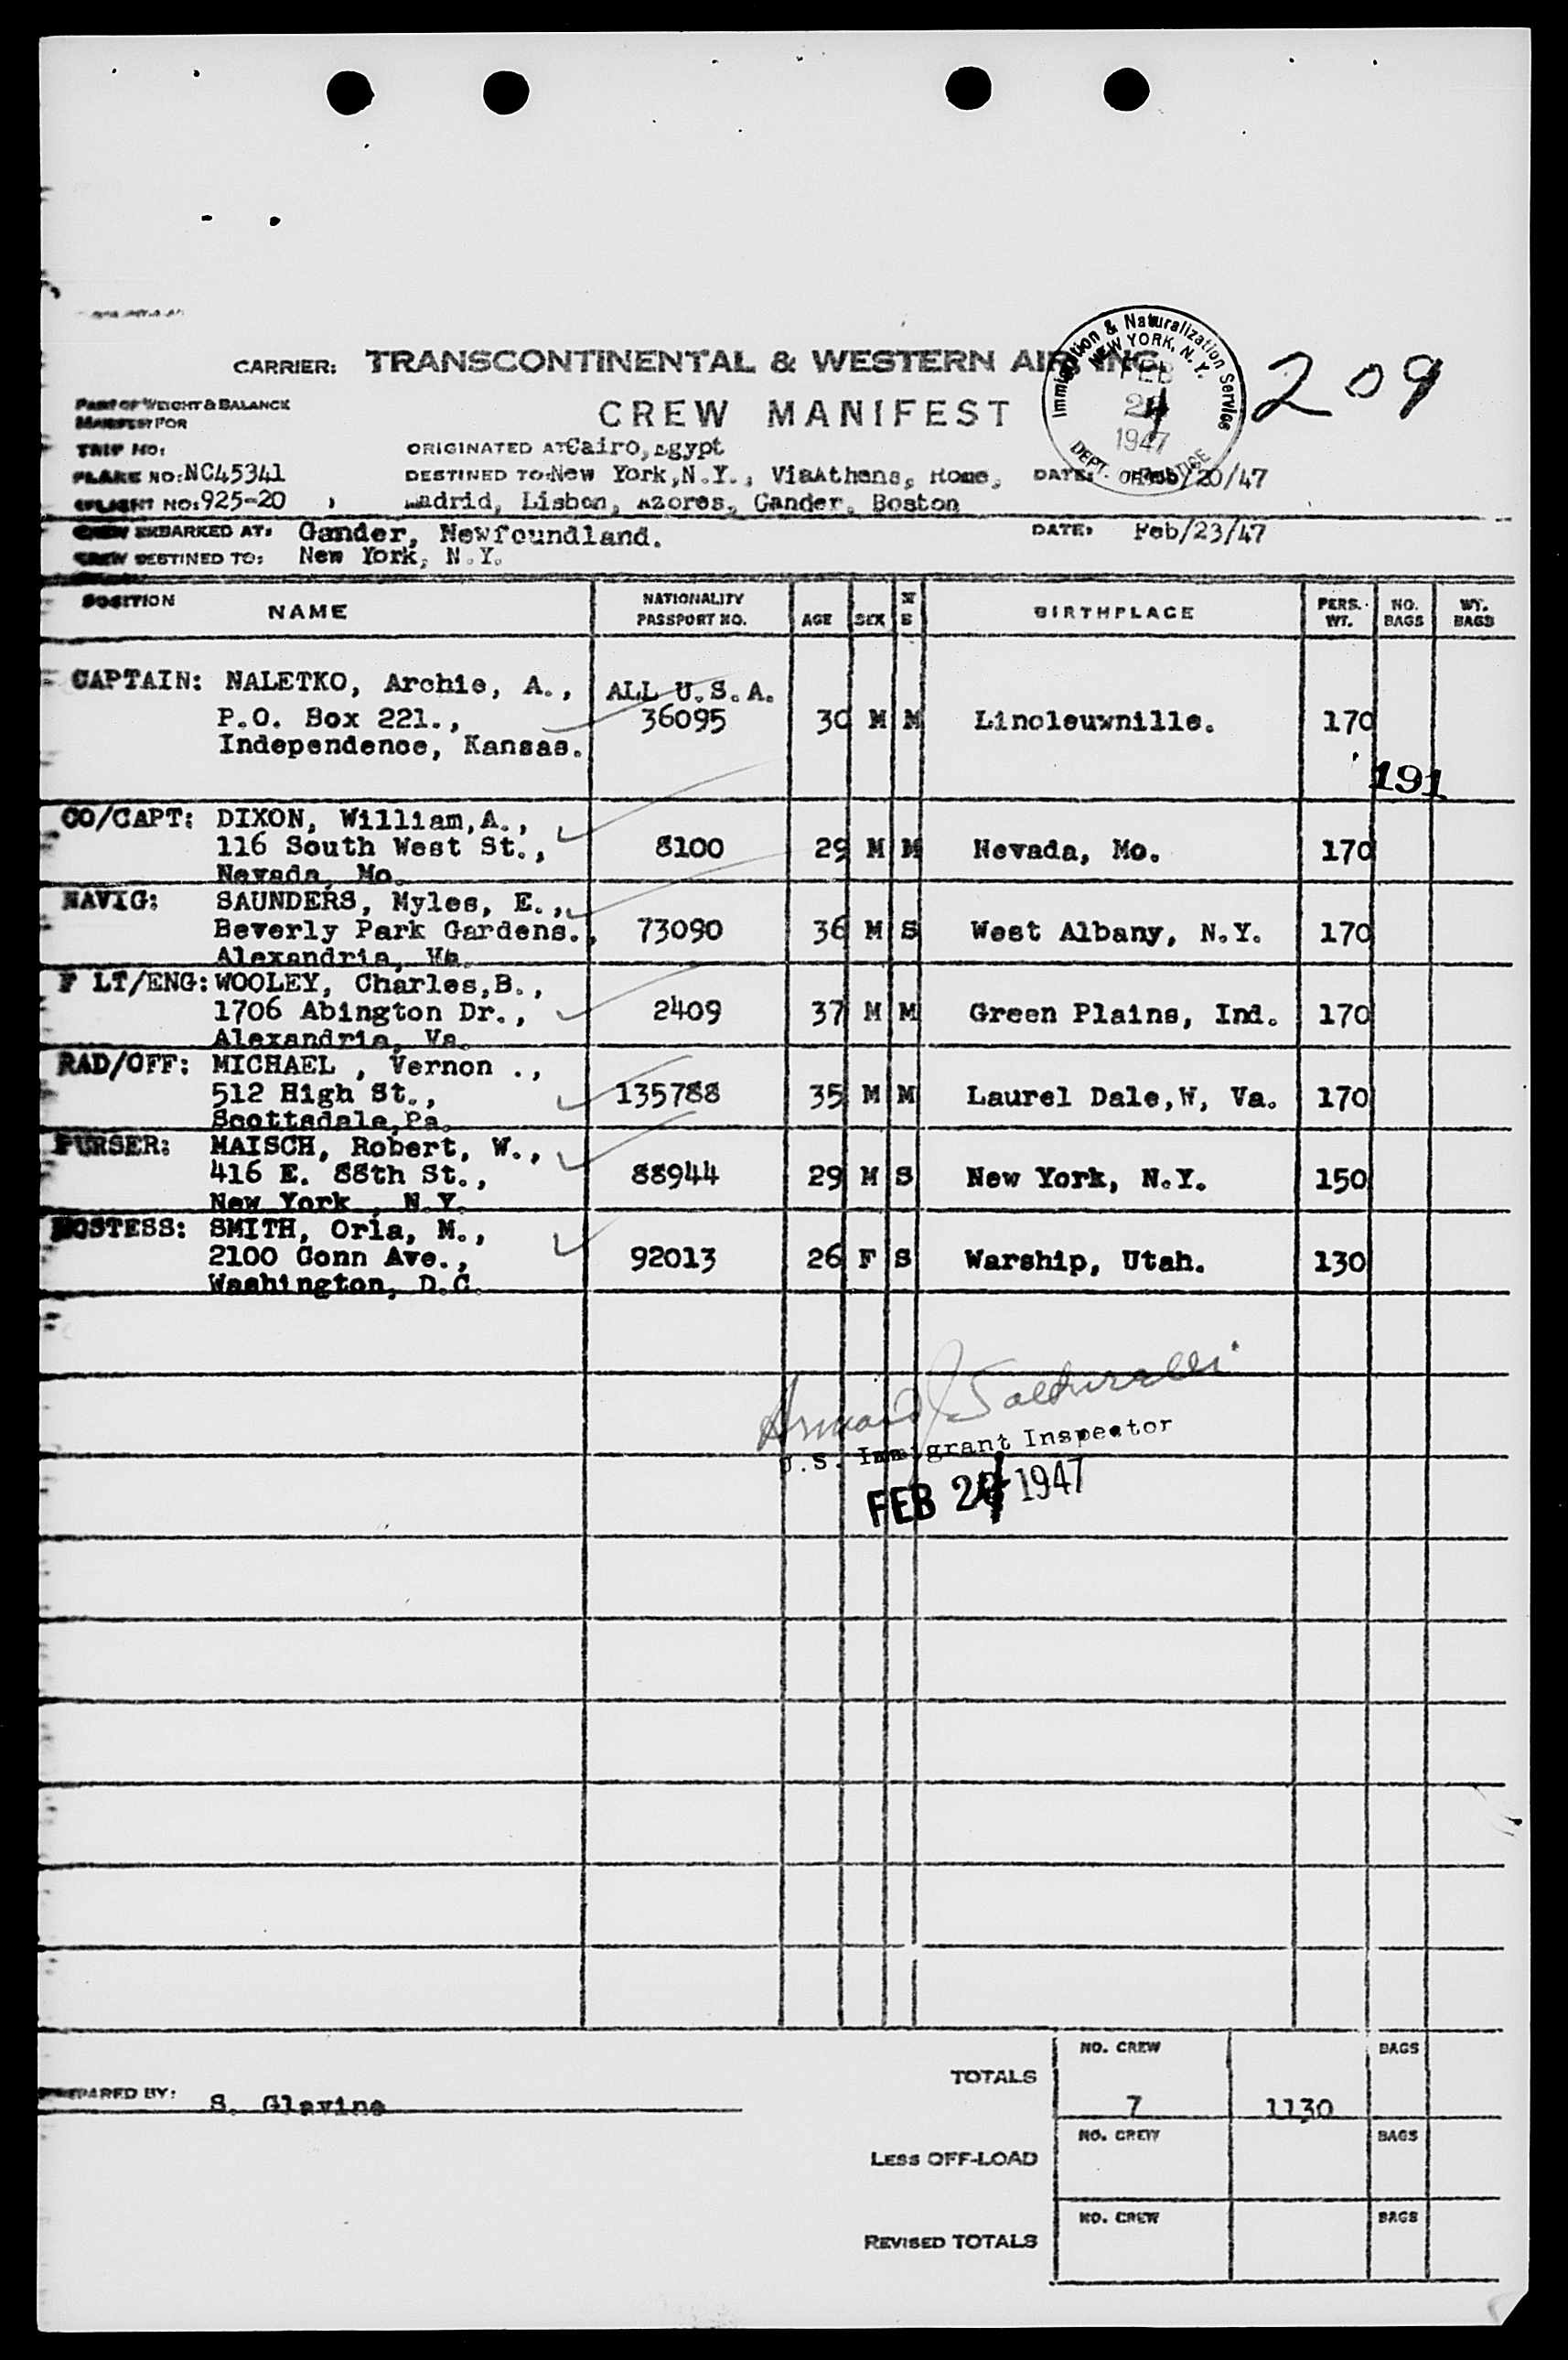 CARRIER: TRANSCONTINENTAL & WESTERN AIR INC.
Immigration & Naturalization Service
NEW YORK, N. Y.
FEB
24
1947
DEPT. OF JUSTICE
209
PART OF WEIGHT & BALANCE
MANIFEST FOR
CREW MANIFEST
TRIP NO:
ORIGINATED AT Cairo, Egypt
PLANE NO: NC45341
DESTINED TO: New York, N.Y., ViaAthens, Rome,
DATE: Feb/20/47
FLIGHT NO: 925-20
Madrid, Lisbon, Azores, Gander, Boston
CREW EMBARKED AT: Gander, Newfoundland.
DATE: Feb/23/47
CREW DESTINED TO: New York, N.Y.
POSITION NAME NATIONALITY PASSPORT NO. AGE SEX M S BIRTHPLACE PERS. WT. NO. BAGS WT. BAGS
CAPTAIN: NALETKO, Archie, A., ALL U.S.A.
P.O. Box 221., 36095 30 M M Lincleuwnille. 170
Independence, Kansas.
191
CO/CAPT: DIXON, William,A.,
116 South West St., 8100 29 M M Nevada, Mo. 170
Nevada, Mo.
NAVIG: SAUNDERS, Myles, E.,
Beverly Park Gardens., 73090 36 M S West Albany, N.Y. 170
Alexandria, Va.
F LT/ENG: WOOLEY, Charles,B.,
1706 Abington Dr., 2409 37 M M Green Plains, Ind. 170
Alexandria, Va.
RAD/OFF: MICHAEL , Vernon .,
512 High St., 135788 35 M M Laurel Dale,W, Va. 170
Scottsdale,Pa.
PURSER: MAISCH, Robert, W.,
416 E. 88th St., 88944 29 M S New York, N.Y. 150
New York , N.Y.
HOSTESS: SMITH, Oria, M.,
2100 Conn Ave., 92013 26 F S Warship, Utah. 130
Washington, D.C.
U.S. Immigrant Inspector
FEB 24 1947
NO. CREW BAGS
TOTALS
PREPARED BY: S. Glavine
7 1130
NO. CREW BAGS
LESS OFF-LOAD
NO. CREW BAGS
REVISED TOTALS